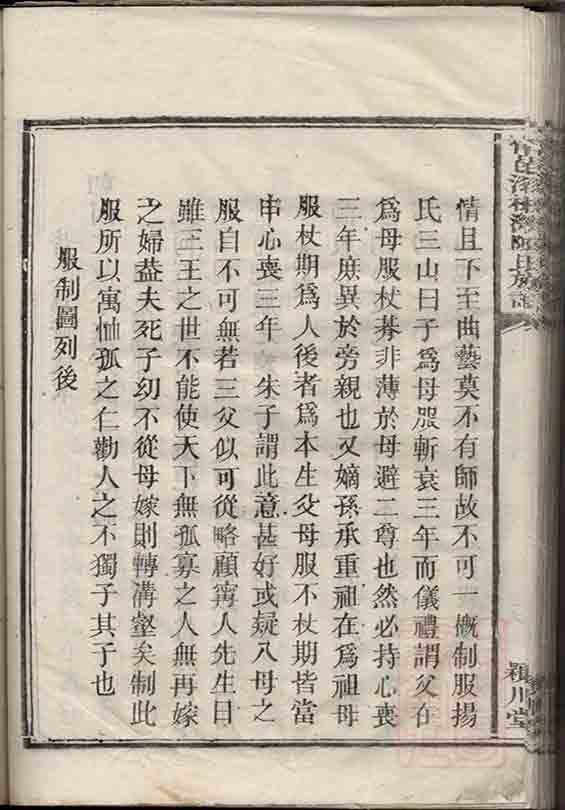 情且下至曲藝莫不有師故不可一槪制服揚
氏三山曰子爲母服斬衰三年而儀禮謂父在
爲母服杖朞非薄於母避二尊也然必持心喪
三年庶異於旁親也又嫡孫承重祖在爲祖母
服杖期爲人後者爲本生父母服不杖期皆當
申心喪三年 朱子謂此意甚好或疑八母之
服自不可無若三父似可從略顧寗人先生曰
雖三王之世不能使天下無孤寡之人無再嫁
之婦葢夫死子幼不從母嫁則轉溝壑矣制此
服所以寓恤孤之仁勸人之不獨子其子也
服制圖列後
陳氏族譜
穎川堂